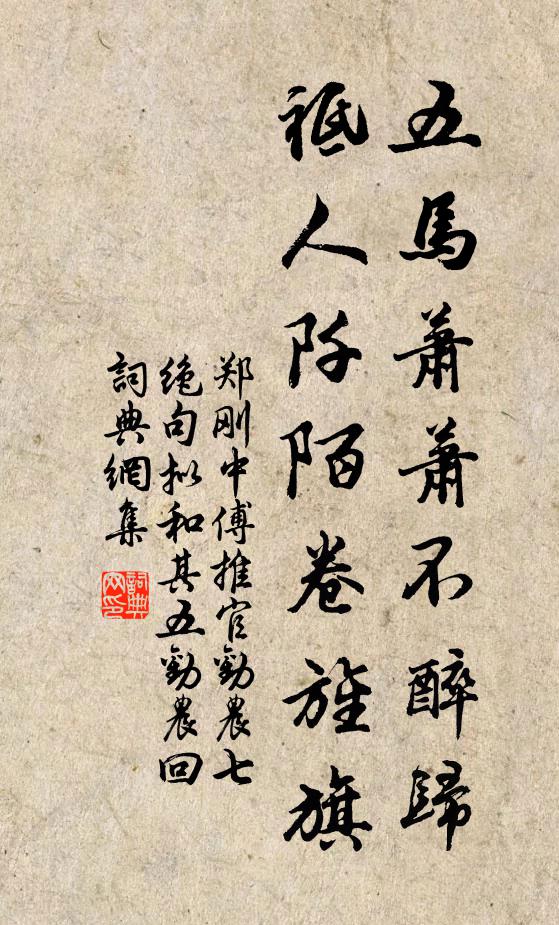 五馬蕭蕭不醉歸
祗人阡陌卷旌旗
郑刚中傅推官勸農七
絶句拟和其五勸農回
詞典網集
詞典
网印